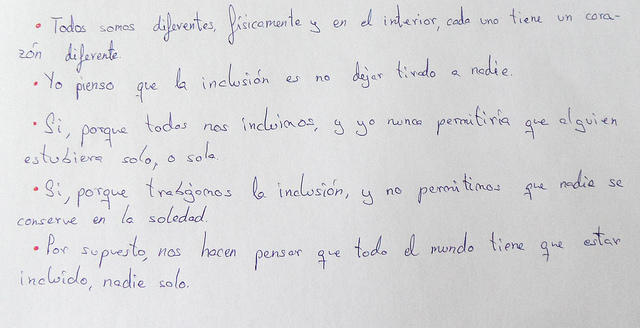 • Todos somos diferentes, físicamente y en el interior, cada uno tiene un cora-
zón diferente.
• Yo pienso que la inclusión es no dejar tirado a nadie.
• Si, porque todos nos incluimos, y yo nunca permitiría que alguien
estubiera solo, o sola.
• Si, porque trabajamos la inclusión, y no permitimos que nadie se
conserve en la soledad.
• Por supuesto, nos hacen pensar que todo el mundo tiene que estar
incluido, nadie solo.